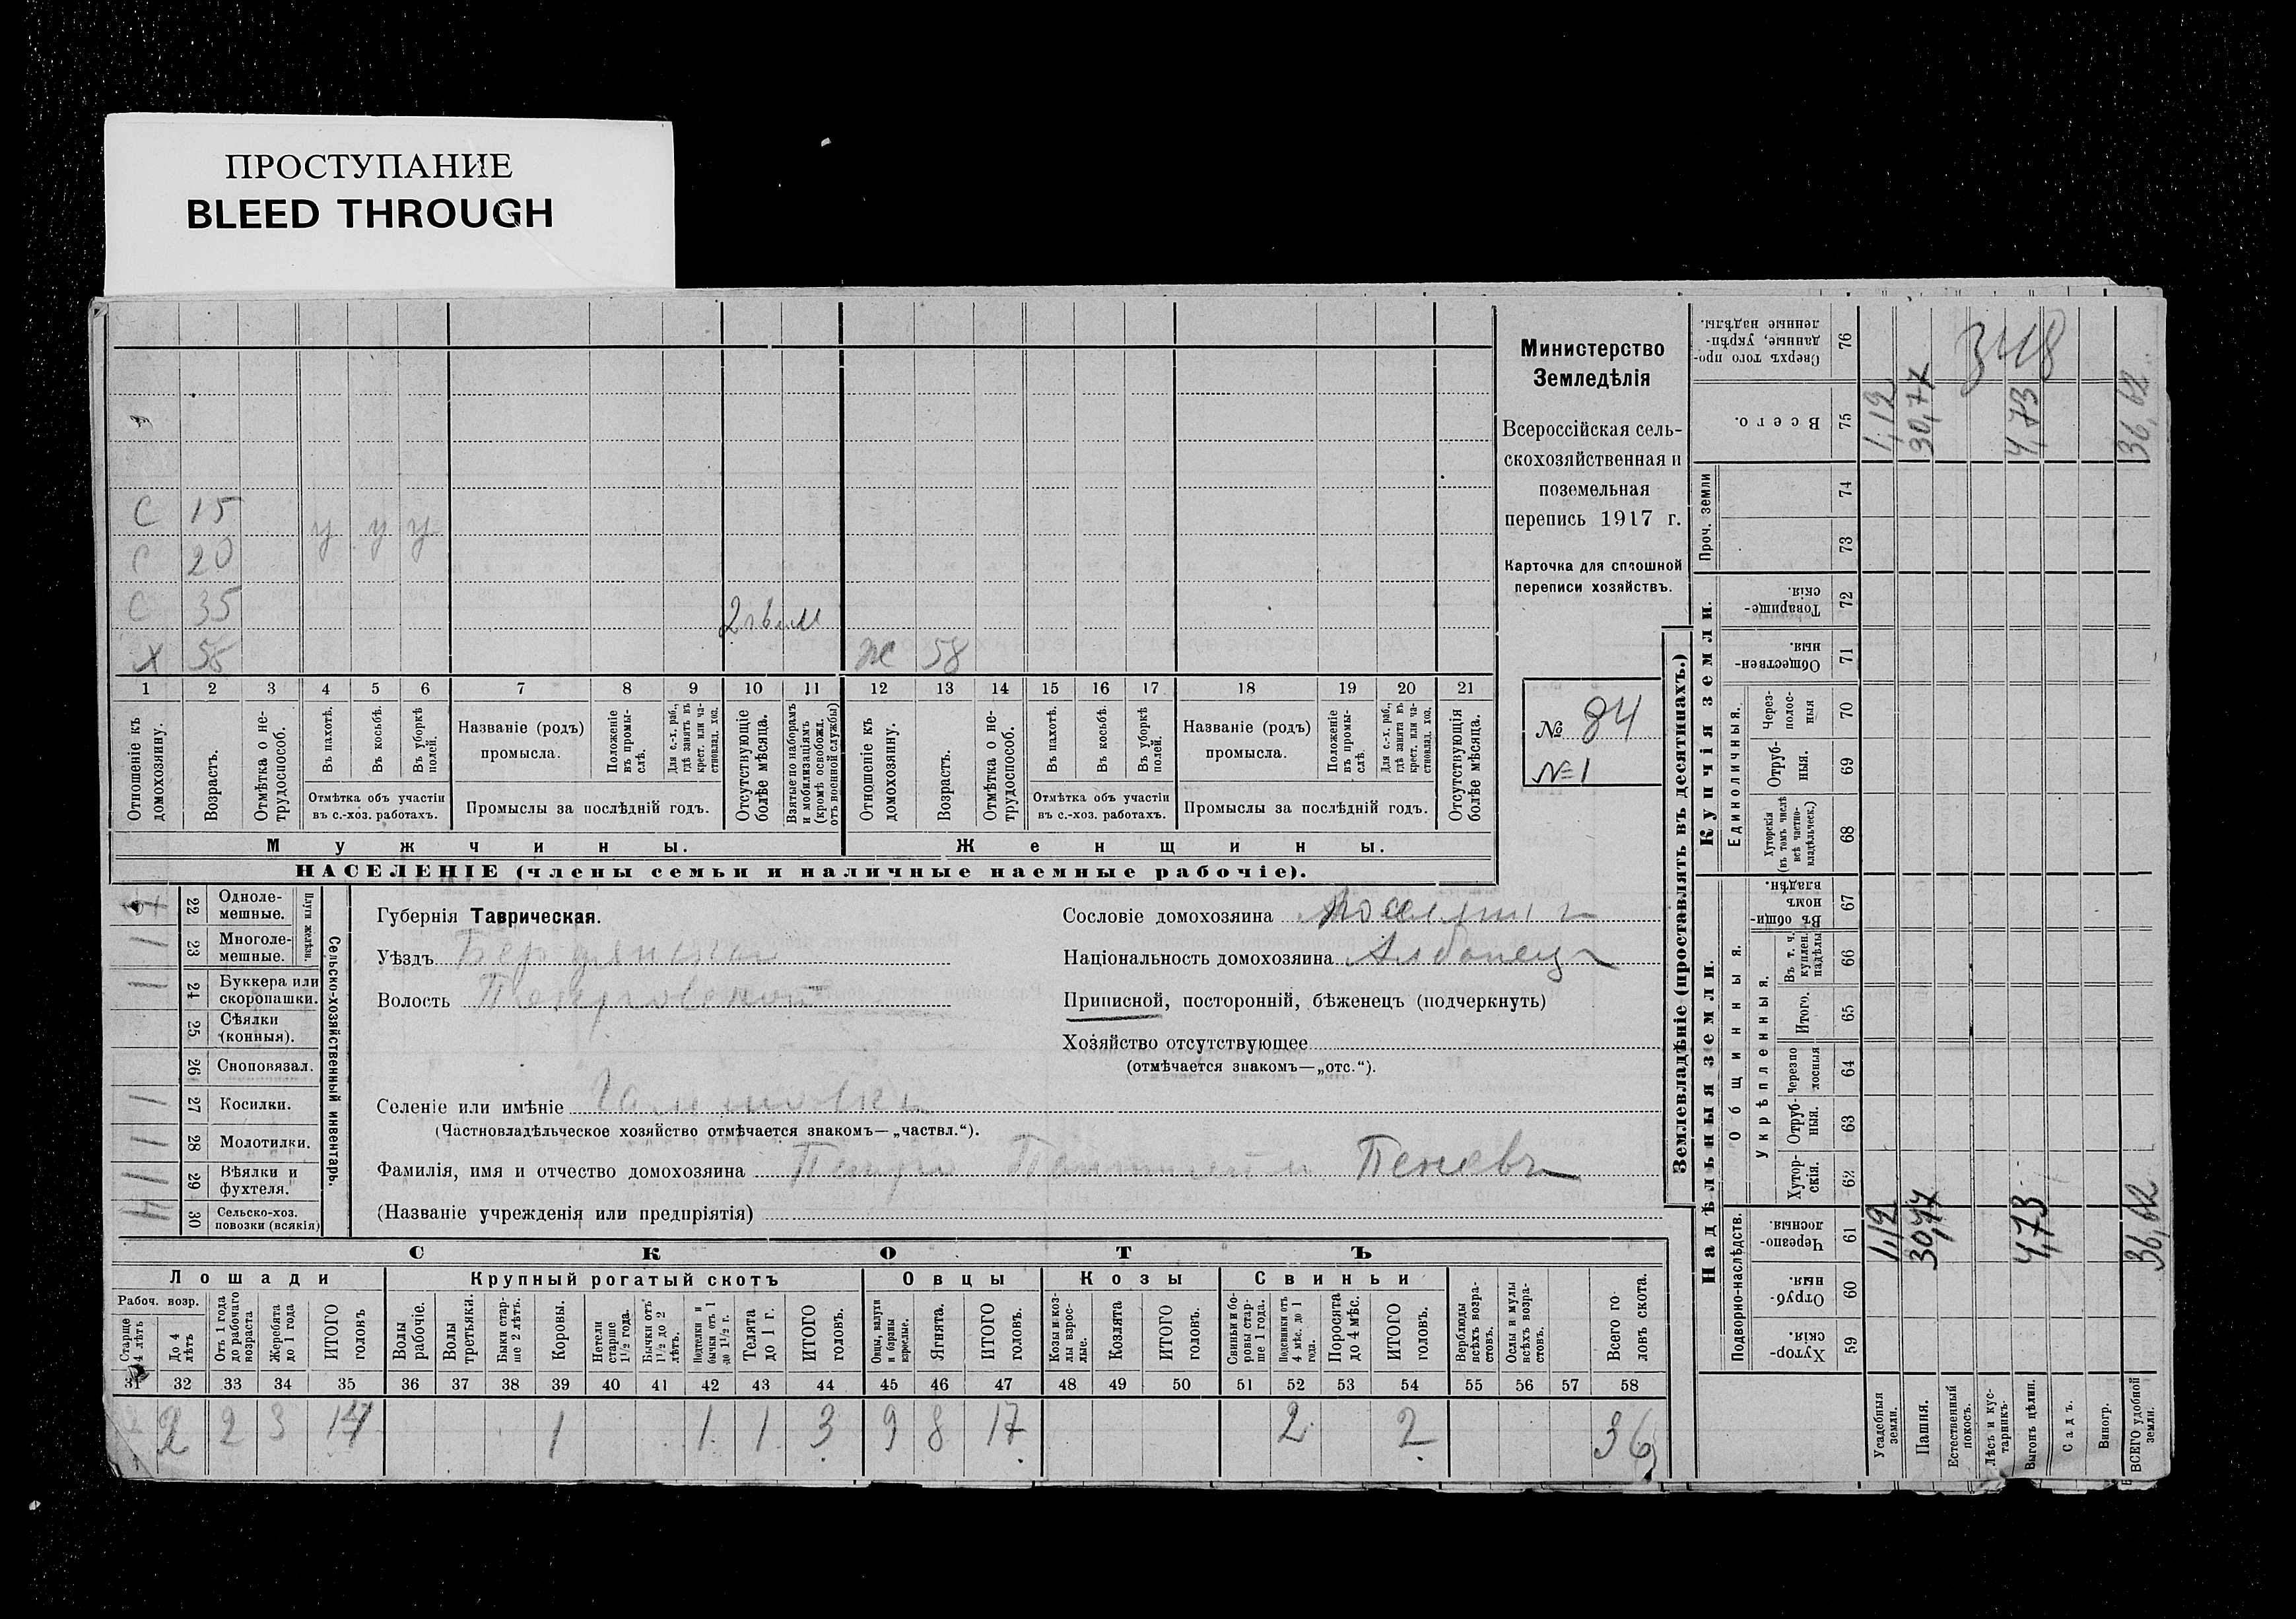 ПРОСТУПАНИЕ
BLEED THROUGH
С 15
С 20 у у у
С 35
Х 55 Ж 58
1 2 3 4 5 6 7 8 9 10 11 12 13 14 15 16 17 18 19 20 21
Отношеніе къ домохозяину.
Возрастъ.
Отмѣтка о не-трудоспособ.
Въ пахотѣ.
Въ косьбѣ.
Въ уборкѣ полей.
Отмѣтка объ участіи
въ с.-хоз. работахъ.
Названіе (родъ)
промысла.
Положеніе въ промы-слѣ.
Для с.-х. раб., гдѣ занятъ въ крест. или ча-стновлад. хоз.
Промыслы за послѣдній годъ.
Отсутствующіе болѣе мѣсяца.
Взятые по наборамъ и мобилизаціямъ (кромѣ освобожд. отъ военной службы)
Отношеніе къ домохозяину.
Возрастъ.
Отмѣтка о не-трудоспособ.
Въ пахотѣ.
Въ косьбѣ.
Въ уборкѣ полей.
Отмѣтка объ участіи
въ с.-хоз. работахъ.
Названіе (родъ)
промысла.
Положеніе въ промы-слѣ.
Для с.-х. раб., гдѣ занята въ крест. или ча-стновлад. хоз.
Промыслы за послѣдній годъ.
Отсутствующія болѣе мѣсяца.
Мужчины. Женщины.
НАСЕЛЕНІЕ (члены семьи и наличные наемные рабочіе).
Министерство
Земледѣлія
Всероссійская сель-
скохозяйственная и
поземельная
перепись 1917 г.
Карточка для сплошной
переписи хозяйствъ.
№ 84
№ 1
Сельско-хозяйственный инвентарь.
Плуги желѣзн.
22 Одноле-мешные.
1 23 Многоле-мешные.
1 24 Буккера или скоропашки.
25 Сѣялки (конныя).
26 Сноповязал.
1 27 Косилки.
1 28 Молотилки.
1 29 Вѣялки и фухтеля.
4 30 Сельско-хоз. повозки (всякія)
Губернія Таврическая.
Уѣздъ Бердянскій
Волость
Селеніе или имѣніе
(Частновладѣльческое хозяйство отмѣчается знакомъ—„частвл.“).
Фамилія, имя и отчество домохозяина Петръ Пеневъ
(Названіе учрежденія или предпріятія)
Сословіе домохозяина
Національность домохозяина Албанецъ
Приписной, посторонній, бѣженецъ (подчеркнуть)
Хозяйство отсутствующее
(отмѣчается знакомъ—„отс.“).
СКОТЪ
Лошади Крупный рогатый скотъ Овцы Козы Свиньи
Рабоч. возр.
Старше 4 лѣтъ
До 4 лѣтъ
Отъ 1 года до рабочаго возраста
Жеребята до 1 года
ИТОГО головъ
Волы рабочіе.
Волы третьяки.
Быки стар-ше 2 лѣтъ.
Коровы.
Нетели старше 1½ года.
Бычки отъ 1½ до 2 лѣтъ.
Подтелки и бычки отъ 1 до 1½ г.
Телята до 1 г.
ИТОГО головъ.
Овцы, валухи и бараны взрослые.
Ягнята.
ИТОГО головъ.
Козы и коз-лы взрос-лые.
Козлята
ИТОГО головъ.
Свиньи и бо-ровы стар-ше 1 года.
Подсвинки отъ 4 мѣс. до 1 года.
Поросята до 4 мѣс.
ИТОГО головъ.
Верблюды всѣхъ возра-стовъ.
Ослы и мулы всѣхъ возра-стовъ.
Всего го-ловъ скота.
31 32 33 34 35 36 37 38 39 40 41 42 43 44 45 46 47 48 49 50 51 52 53 54 55 56 57 58
2 2 3 14 1 1 1 3 9 8 17 2 2 36
Землевладѣніе (проставлять въ десятинахъ.)
Надѣльныя земли. Купчія земли. Проч. земли
Подворно-наслѣдств. Общинныя. Единоличныя.
Укрѣпленныя.
Хутор-скія. 59
Отруб-ныя. 60
Черезпо-лосныя 61
Хутор-скія. 62
Отруб-ныя. 63
Черезпо-лосныя 64
Итого. 65
Въ т. ч. куплен. надѣлы 66
Въ общин-номъ владѣн. 67
Хуторскія (въ томъ числѣ всѣ частно-владѣльческ.) 68
Отруб-ныя. 69
Через-полос-ныя 70
Обществен-ныя 71
Товарище-скія. 72
73
74
Всего. 75
Сверхъ того про-данные, укрѣп-ленные надѣлы. 76
Усадебныя земли. 1,12 1,12
Пашня. 30,77 30,77
Естественный покосъ.
Лѣсъ и кус-тарникъ.
Выгонъ цѣлин. 4,73 4,73
Садъ.
Виногр.
ВСЕГО удобной земли. 36,62 36,62
348